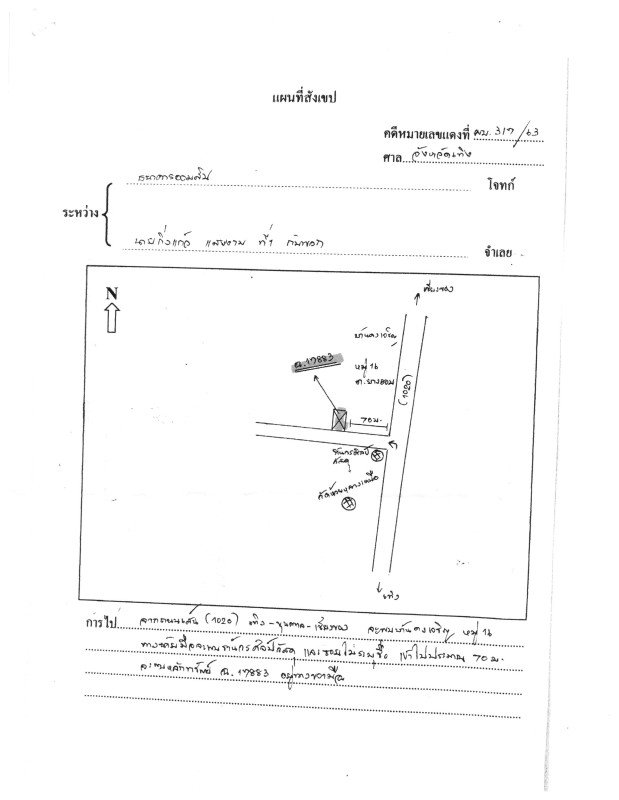 แผนที่สังเขป
คดีหมายเลขแดงที่ ผบ. 317/63
ศาล จังหวัดเทิง
ธนาคารออมสิน
โจทก์
ระหว่าง
นายกิ่งแก้ว ที่ 1 กับพวก
จำเลย
N
เชียงของ
บ้านดงเจริญ
ฉ. 17883
หมู่ 16
ต. ยางฮอม
(1020)
70 ม.
ร้านกรศิลป์
วัสดุ
เทิง
การไป จากถนนเส้น (1020) เทิง - ขุนตาล - เชียงของ จะพบบ้านดงเจริญ หมู่ 16
ทางซ้ายมือจะพบร้านกรศิลป์วัสดุ และซอยไม่ระบุชื่อ เข้าไปประมาณ 70 ม.
จะพบหลักทรัพย์ ฉ. 17883 อยู่ทางขวามือ